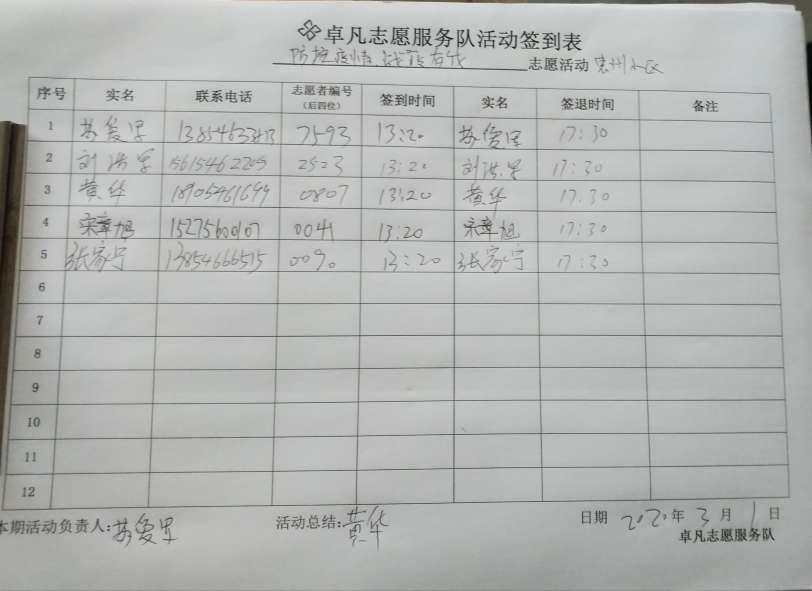 卓凡志愿服务队活动签到表
防控疫情 战 有我 志愿活动 惠州小区
序号 实名 联系电话 志愿者编号（后四位） 签到时间 实名 签退时间 备注
1 苏爱军 7593 13:20 苏爱军 17:30
2 刘洪军 15615462209 2523 13:20 刘洪军 17:30
3 黄华 18905461699 0807 13:20 黄华 17:30
4 宋章旭 15275600107 0041 13:20 宋章旭 17:30
5 张家宁 13854666515 0090 13:20 张家宁 17:30
6
7
8
9
10
11
12
本期活动负责人:苏爱军 活动总结:黄华 日期 2020年3月1日
卓凡志愿服务队